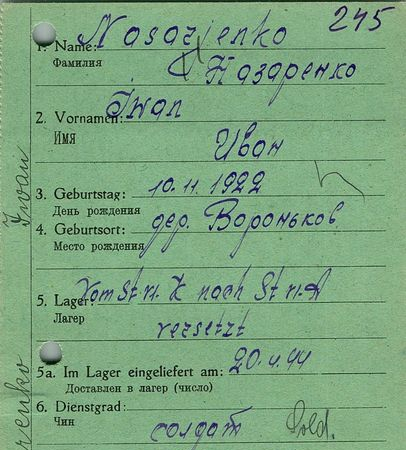 245
1. Name: Nasarjenko
Фамилия Назаренко
2. Vornamen: Iwan
Имя Иван
3. Geburtstag: 10.11.1922
День рождения
4. Geburtsort: дер. Вороньков
Место рождения
5. Lager: Vom St. nach St.
Лагер versetzt
5a. Im Lager eingeliefert am: 20.4.44
Доставлен в лагер (число)
6. Dienstgrad:
Чин солдат Sold.
Iwan